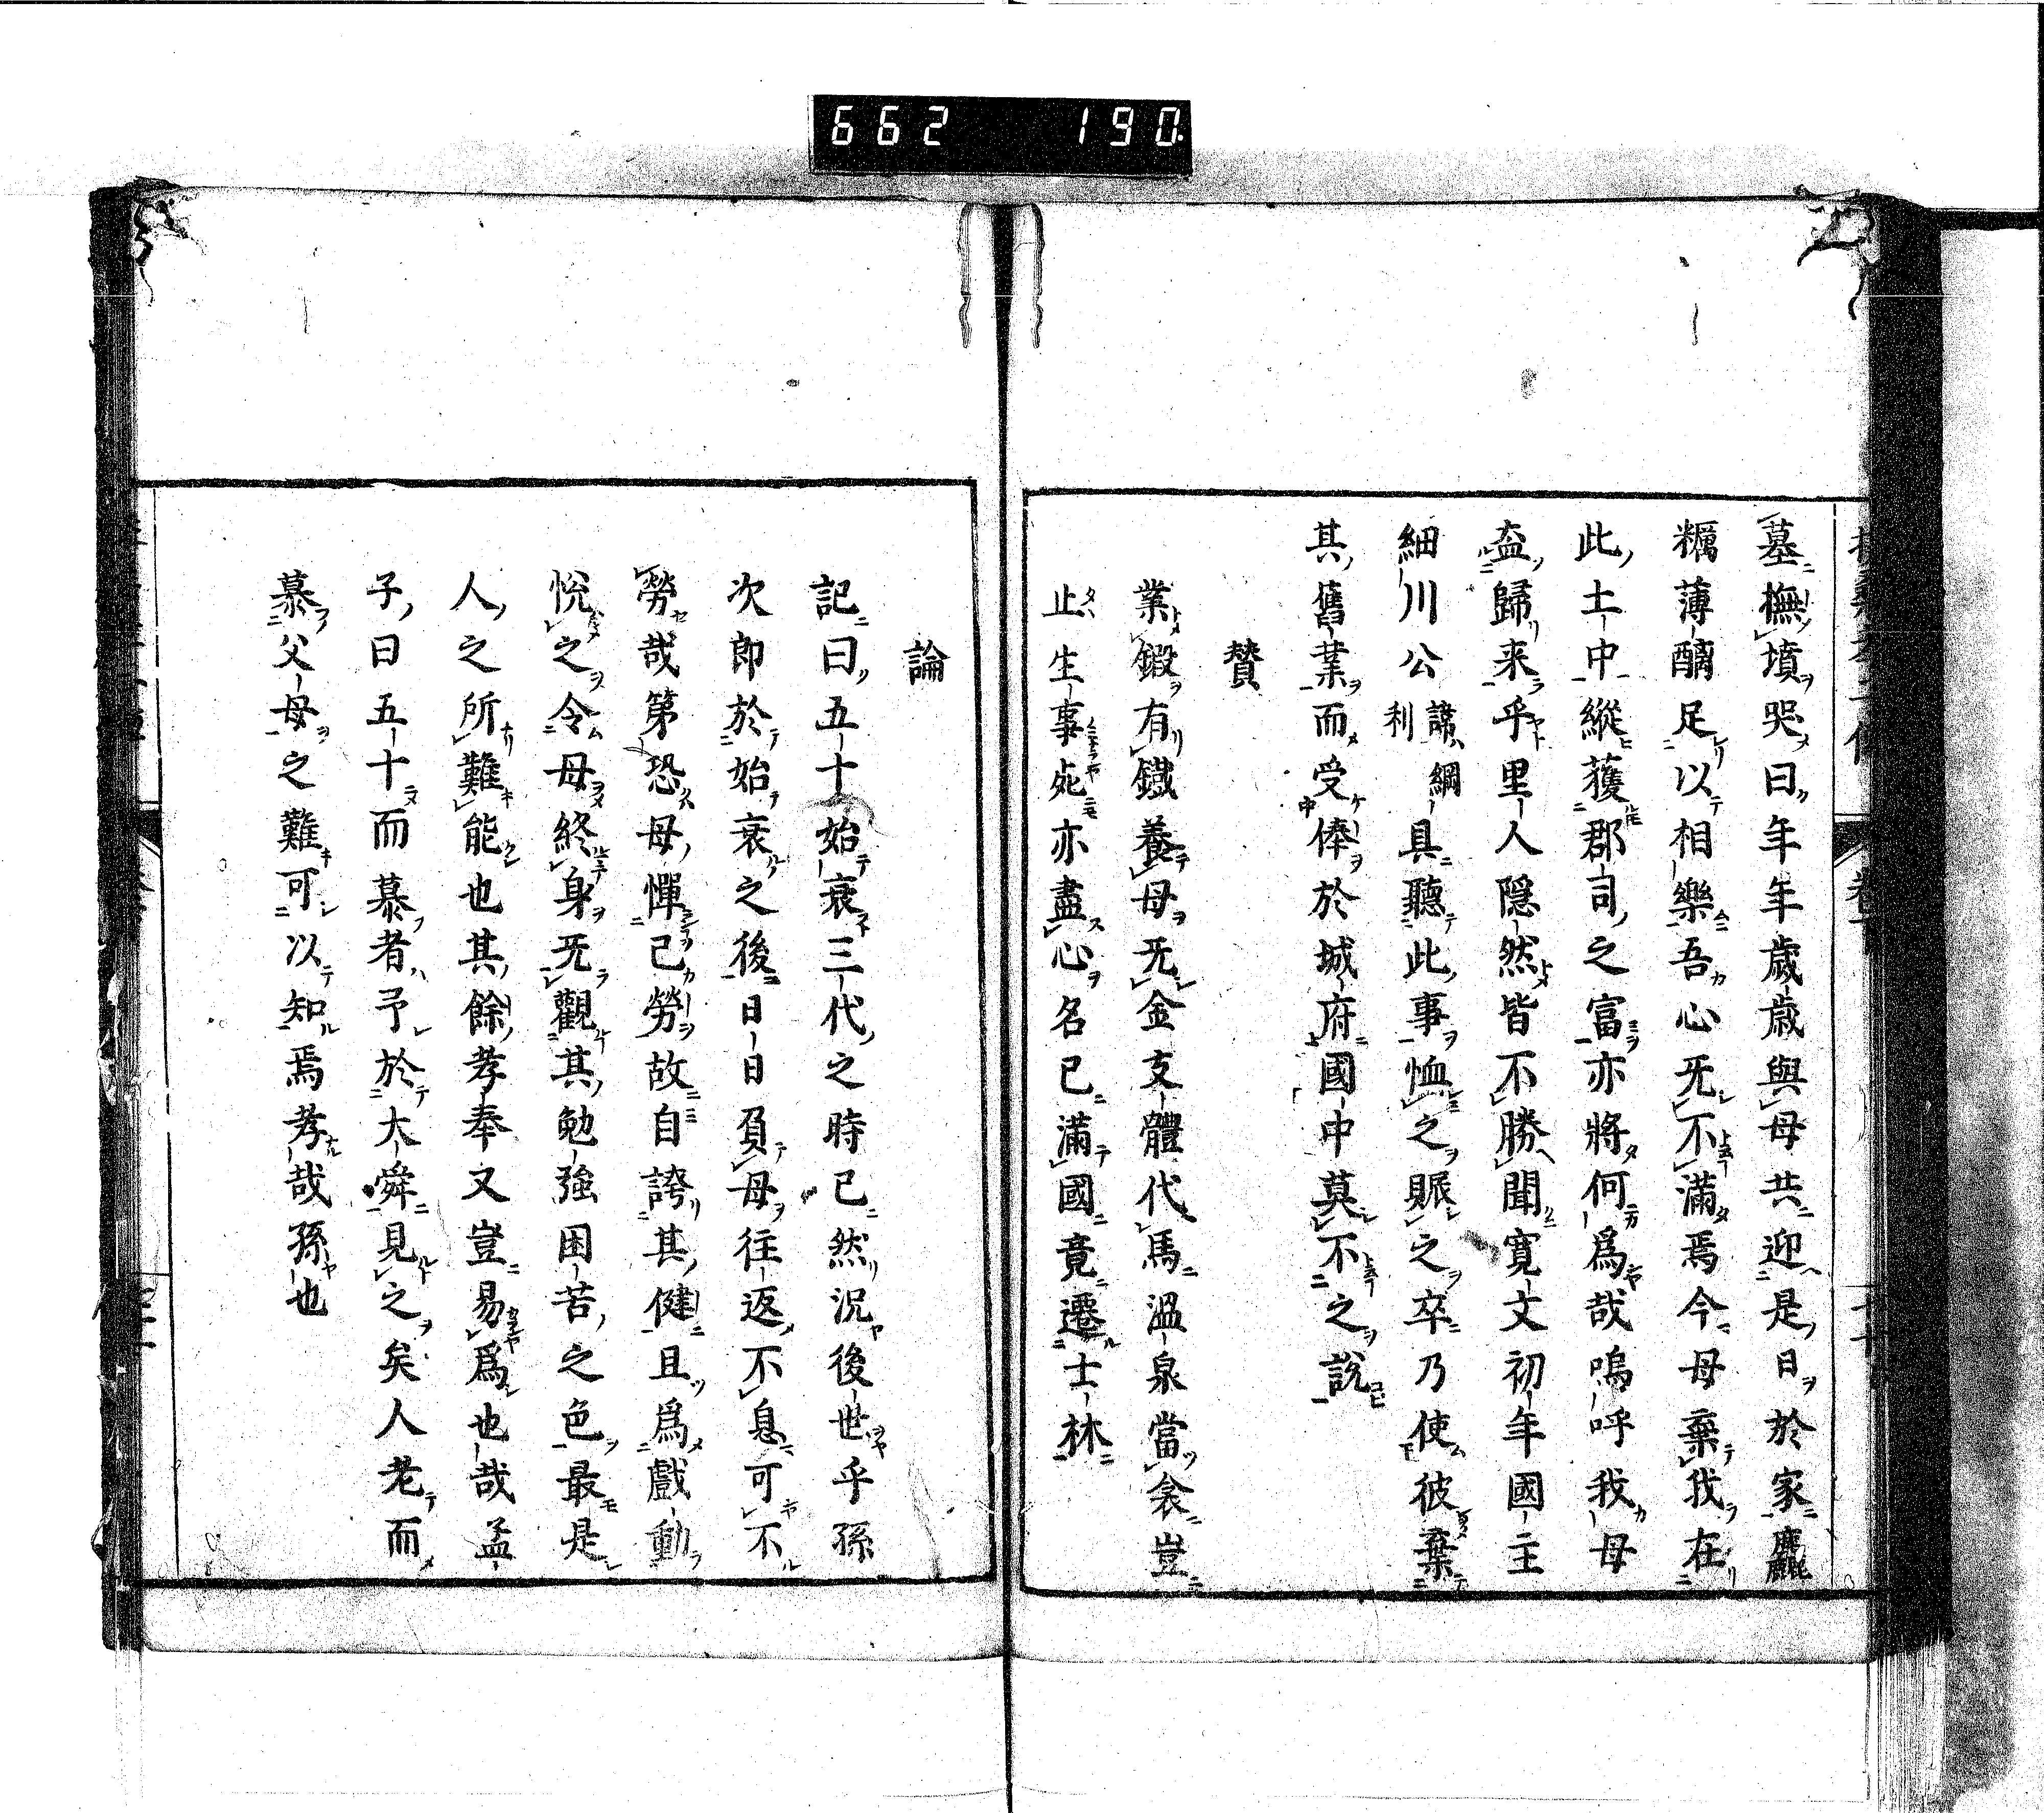 662 190
墓撫墳哭曰年年歲歲與母共迎是日於家麤
糲薄醨足以相樂吾心旡不滿焉今母棄我在
此土中縱獲郡司之富亦將何爲哉嗚呼我母
盍歸来乎里人隠然皆不勝聞寛文初年國主
細川公諱綱利具聽此事恤之賑之卒乃使彼棄
其舊業而受俸於城府國中莫不之說
賛
業鍛有鐡養母旡金支體代馬溫泉當衾豈
止生事死亦盡心名已滿國竟遷士林
論
記曰五十始衰三代之時已然況後世乎孫
次郎於始衰之後日日負母往返不息可不
勞哉第恐母憚己勞故自誇其健且爲戲動
悅之令母終身旡觀其勉強困苦之色最是
人之所難能也其餘孝奉又豈易爲也哉孟
子曰五十而慕者予於大舜見之矣人老而
慕父母之難可以知焉孝哉孫也